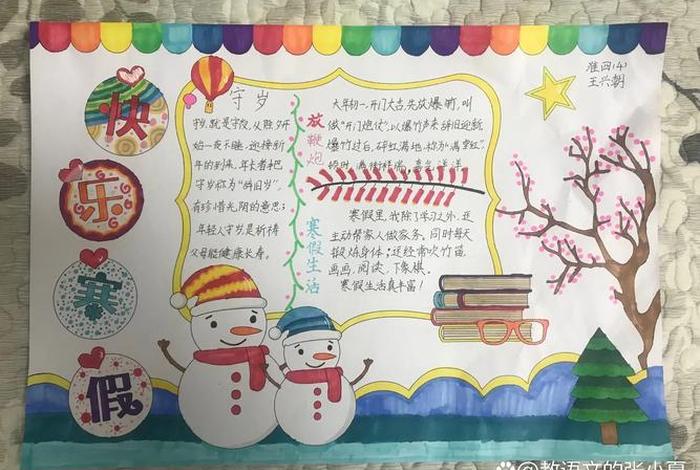 快
乐
寒
假
守岁
守岁，就是守夜，从除夕开
始一夜不睡，迎接新
年的到来，年长者把
守岁称为“辞旧岁”
有珍惜光阴的意思；
年轻人守岁是祈祷
父母能健康长寿。
放鞭炮
大年初一，开门大吉，先放爆竹，叫
做“开门炮仗”，以爆竹声来辞旧迎新，
爆竹过后，碎红满地，称为“满堂红”，
寒假生活
寒假里，我除了学习之外，还
主动帮家人做家务。同时每天
锻炼身体；还经常吹竹笛，
画画，阅读，下象棋。
寒假生活真丰富！
准四(4)
王兴朝
教语文的张小真